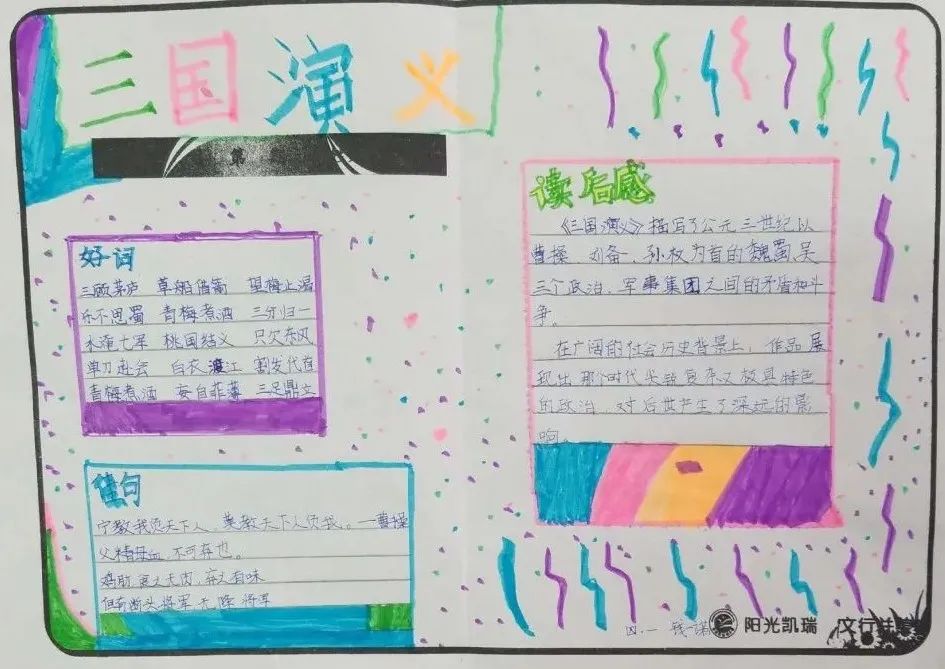 三国演义
第
好词
三顾茅庐 草船借箭 望梅止渴
乐不思蜀 青梅煮酒 三分归一
水淹七军 桃园结义 只欠东风
单刀赴会 白衣渡江 割发代首
青梅煮酒 妄自菲薄 三足鼎立
佳句
宁教我负天下人,莫教天下人负我。一曹操
父精母血,不可弃也。
鸡肋食之无肉,弃之有味
但有断头将军无降将军
读后感
《三国演义》描写了公元三世纪以
曹操、刘备、孙权为首的魏蜀吴
三个政治、军事集团之间的矛盾和斗
争。
在广阔的社会历史背景上,作品展
现出那个时代尖锐复杂又极具特色
的政治,对后世产生了深远的影
响。
四.一
阳光凯瑞 文行